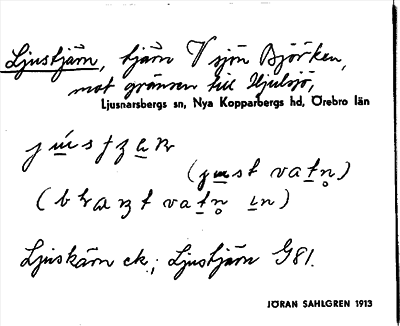 Ljustjärn, tjärn V sjön Björken,
mot gränsen till Hjulsjö,
Ljusnarsbergs sn, Nya Kopparbergs hd, Örebro län
(just vatn)
vatn in)
Ljuskärn ek.; Ljustjärn G81.
JÖRAN SAHLGREN 1913